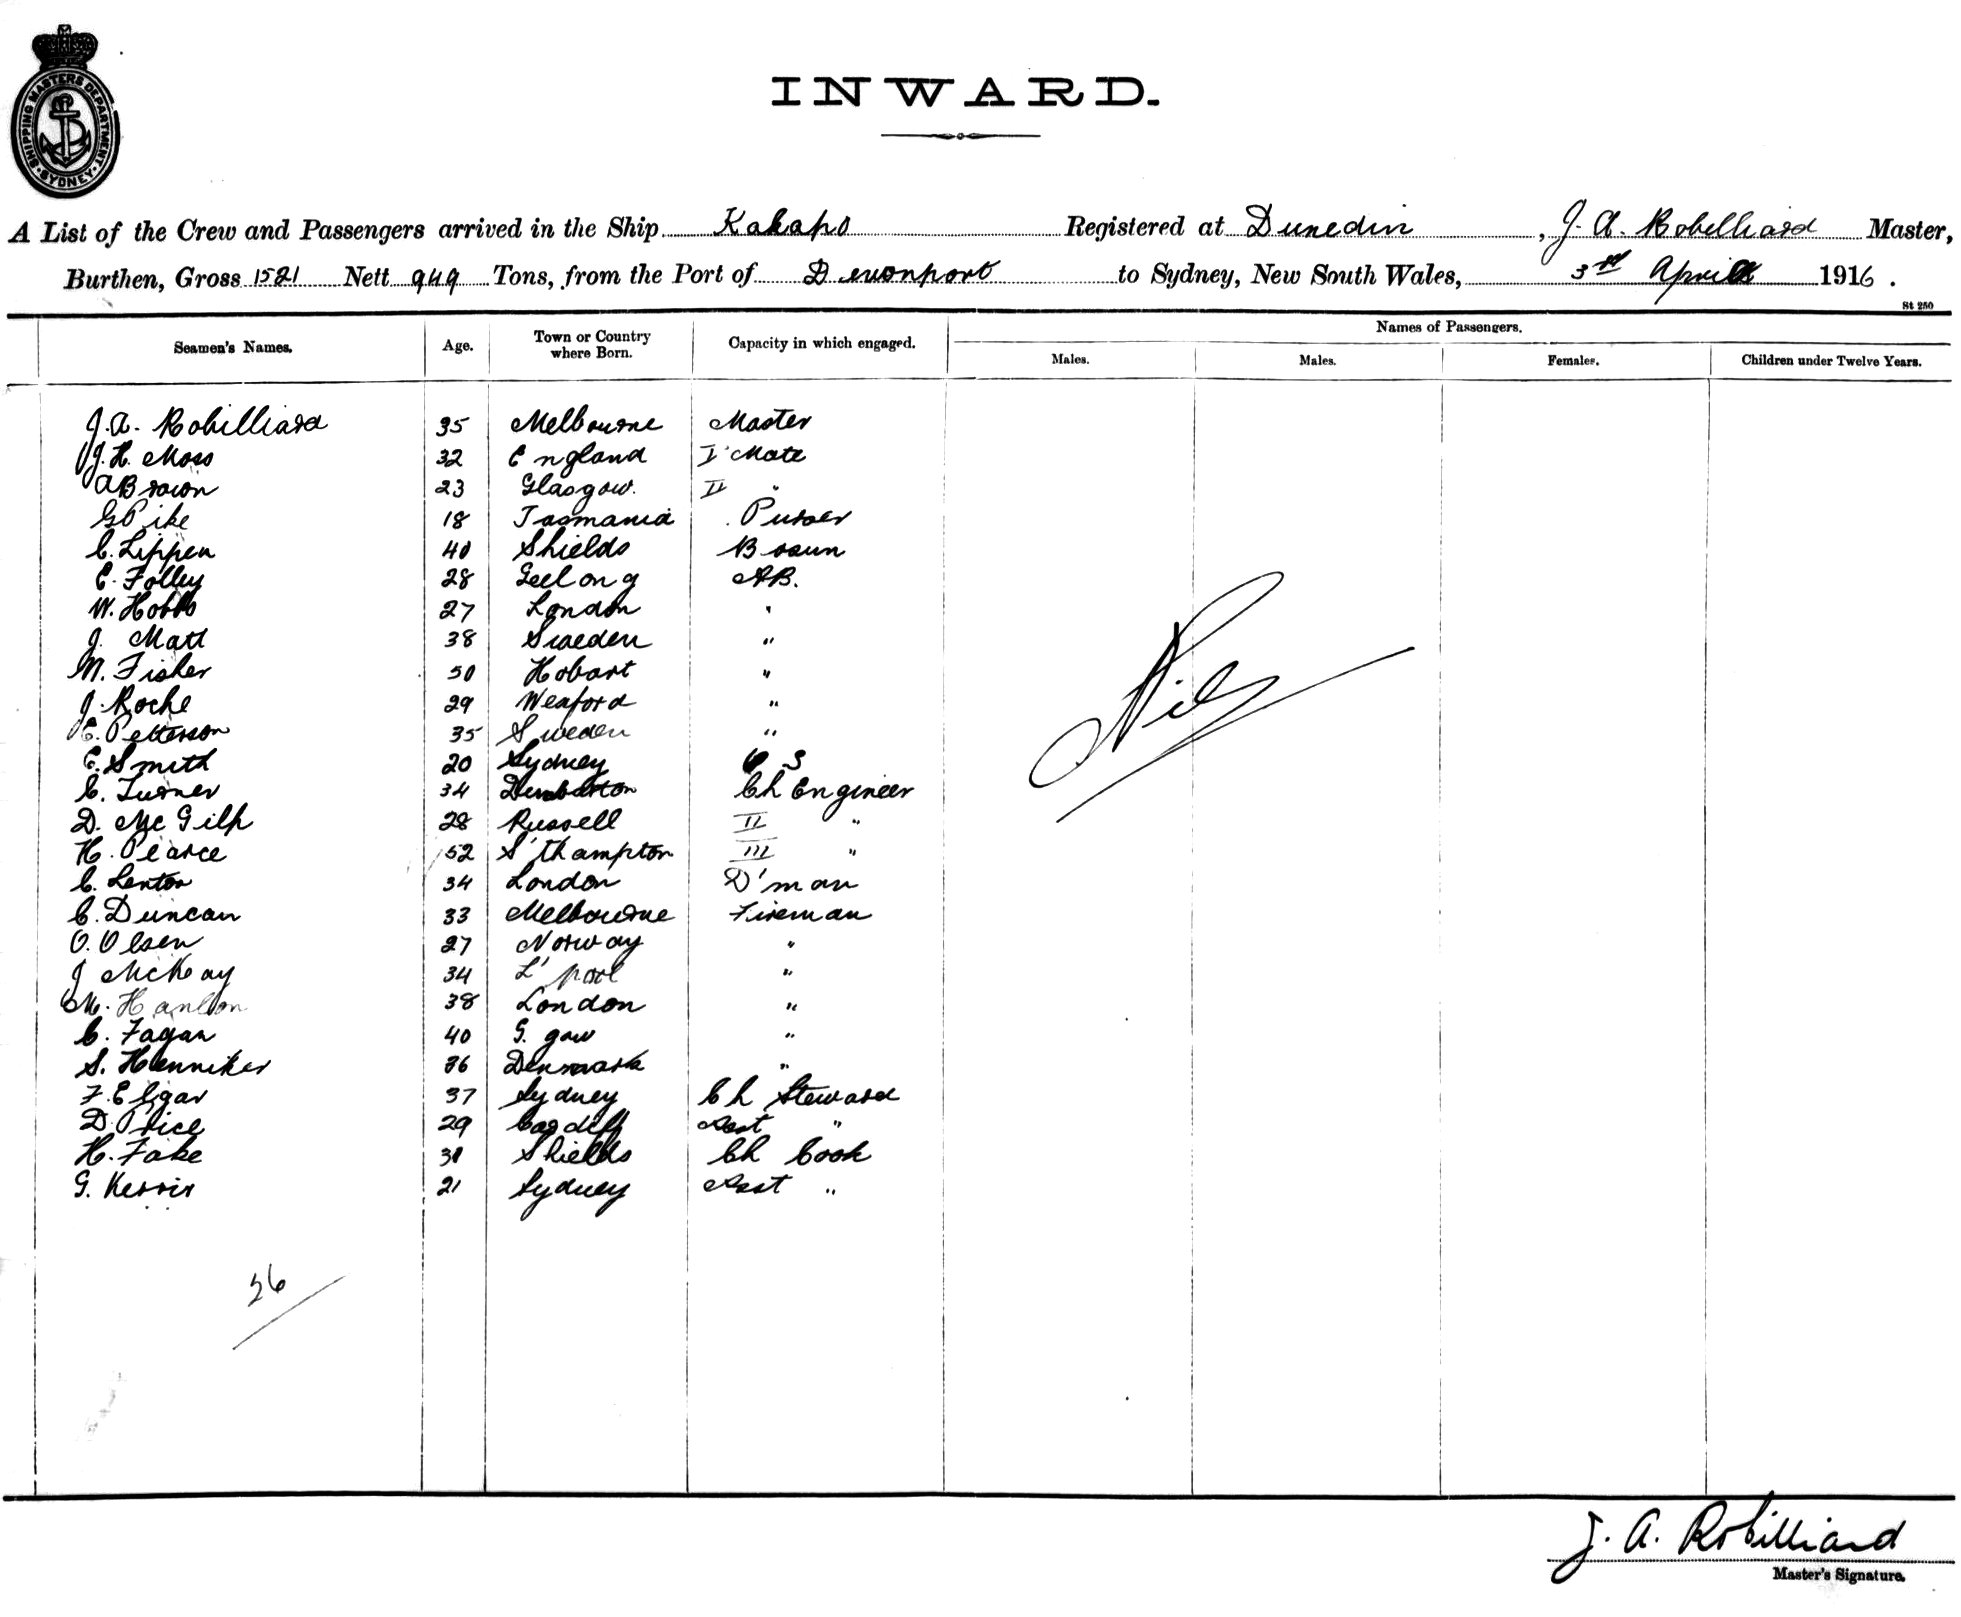 SHIPPING MASTERS DEPARTMENT. SYDNEY.
INWARD.
A List of the Crew and Passengers arrived in the Ship Kakapo Registered at Dunedin, J. A. Robilliard Master,
Burthen, Gross 1521 Nett 949 Tons, from the Port of Devonport to Sydney, New South Wales, 3rd April 1916.
St 250
Seamen's Names. Age. Town or Country where Born. Capacity in which engaged. Names of Passengers.
Males. Males. Females. Children under Twelve Years.
J. A. Robilliard 35 Melbourne Master
J. H. Moss 32 England I Mate
A Brown 23 Glasgow. II "
G Pike 18 Tasmania Purser
C. Lippen 40 Shields Bosun
E. Folley 28 Geelong AB.
W. Hobbs 27 London "
J. Matt 38 Sweden "
W. Fisher 50 Hobart "
J. Roche 29 Wexford "
E. Petterson 35 Sweden "
E. Smith 20 Sydney O S
C. Turner 34 Dumbarton Ch Engineer
D. McGilp 28 Russell II "
H. Pearce 52 S'thampton III "
C. Lenton 34 London D'man
C. Duncan 33 Melbourne Fireman
O. Olsen 27 Norway "
J McKay 34 L'pool "
M. Hanlon 38 London "
C. Fagan 40 G. gow "
S. Henniker 36 Denmark "
F. Elgar 37 Sydney Ch Steward
D. Price 29 Cardiff Asst "
H. Fake 31 Shields Ch Cook
G. Kerrir 21 Sydney Asst "
Nil
26
J. A. Robilliard
Master's Signature.